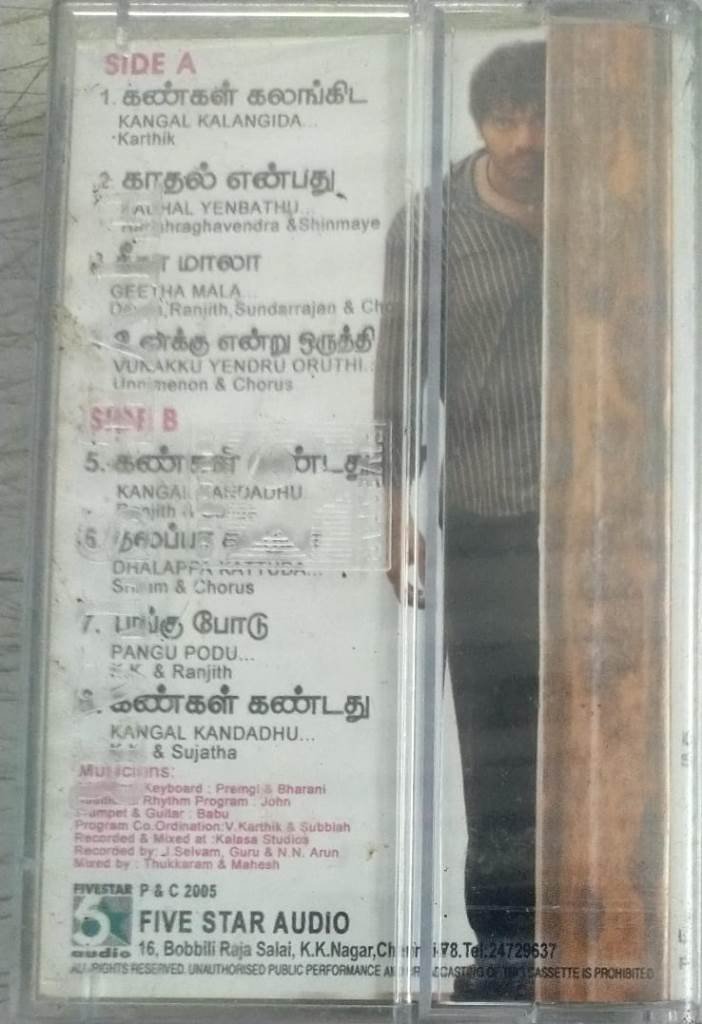 SIDE A
1. கண்கள் கலங்கிட
KANGAL KALANGIDA...
Karthik
2. காதல் என்பது
YENBATHU...
&Shinmaye
3. மாலா
GEETHA MALA...
Ranjith,Sundarrajan & Cho
என்று ஒருத்தி
VUNAKKU YENDRU ORUTHI...
Unnimenon & Chorus
SIDE B
5. கண்கள்
KANGAL KANDADHU
Ranjith
6.
DHALAPPA KATTUDA...
& Chorus
7. பங்கு போடு
PANGU PODU...
& Ranjith
8. கண்கள் கண்டது
KANGAL KANDADHU...
& Sujatha
Musicians:
Keyboard : Premgi & Bharani
Rhythm Program : John
Trumpet & Guitar : Babu
Program Co.Ordination:V.Karthik & Subbiah
Recorded & Mixed at :Kalasa Studios
Recorded by: J.Selvam, Guru & N.N. Arun
Mixed by : Thukkaram & Mahesh
FIVESTAR P & C 2005
audio FIVE STAR AUDIO
16, Bobbili Raja Salai, K.K.Nagar,Chennai-78.Tel:24729637
ALL RIGHTS RESERVED. UNAUTHORISED PUBLIC PERFORMANCE AND BROADCASTING OF THIS CASSETTE IS PROHIBITED